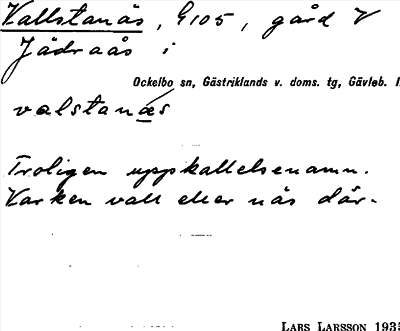 Vallstanäs, G105, gård V
Jädraås i
Ockelbo sn, Gästriklands v. doms. tg, Gävleb. l
valstanæ´s
Troligen uppkallelsenamn.
Varken vall eller näs där.
LARS LARSSON 193